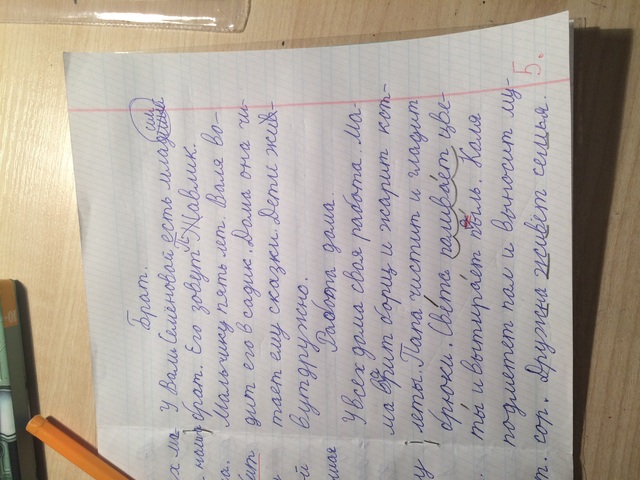 Брат.
У Вали Семёновой есть млад
ший
брат. Его зовут Павлик.
Мальчику пять лет. Валя во-
дит его в садик. Дома она чи-
тает ему сказки. Дети жив-
вутдружно.
Работа дома.
У всех дома своя работа. Ма-
ма варит борщ и жарит кот-
леты. Папа чистит и гладит
брюки. Света поливает цве-
ты и вытирает пыль. Коля
подметет пол и выносит му-
сор. Дружна живёт семья.
5.
х ма